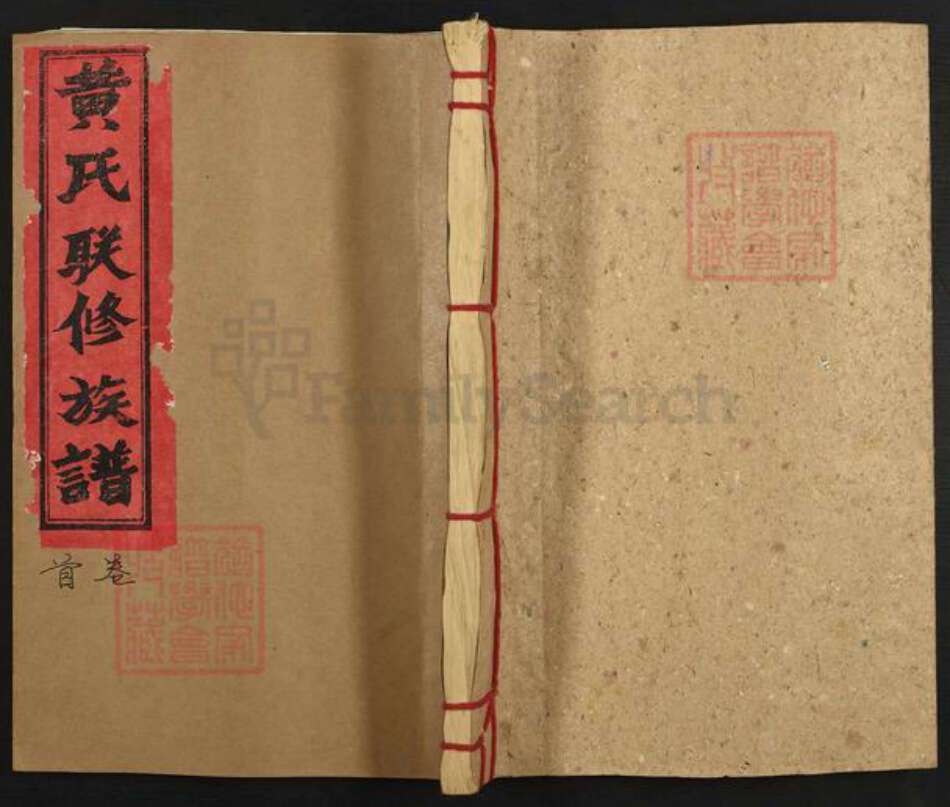 黄氏联修族譜
首卷
FamilySearch